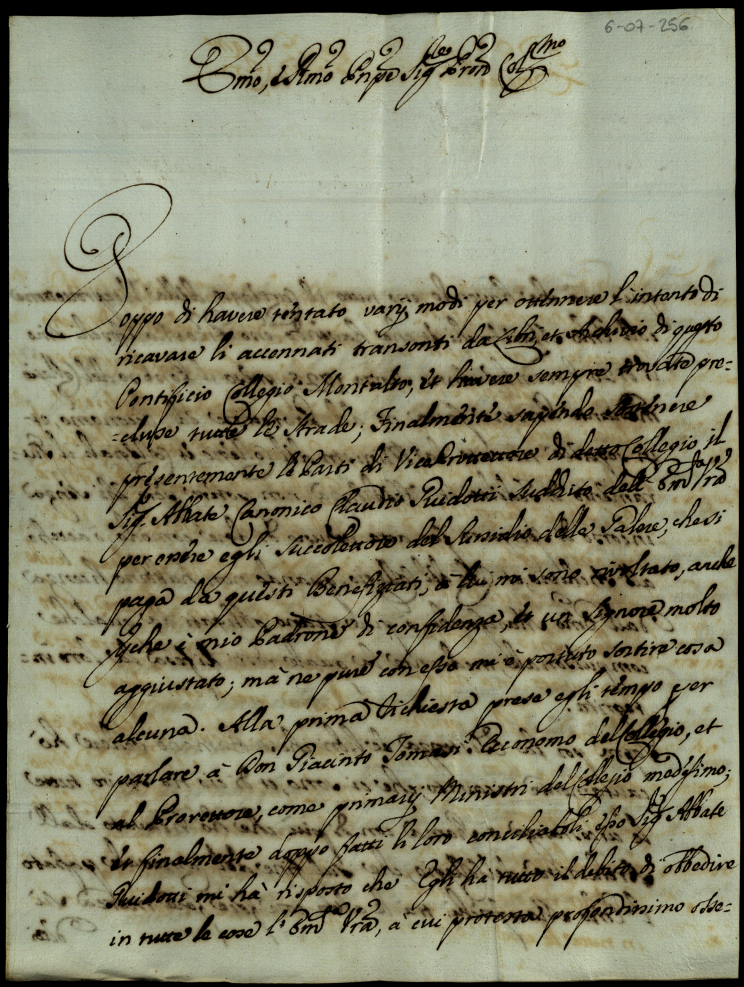 6-07-256
Emo, e Rmo Prnpe Sig.re Pron Col.mo
Doppo di havere tentato varij modi per ottennere l'intento di
ricavare li accennati transonti da Libri, et Archivio di questo
Pontificio Collegio Montalto, et havere sempre trovate pre-
-cluse tutte le strade; Finalmente sapendo sostenere
presentemente le Parti di Vice Protettore di detto Collegio il
Sig. Abbate Canonico Claudio Guidotti suddito dell' Em.za Vra
per essere egli Succolettore del Sussidio delle Galere, che si
paga da questi Beneficiati, à lui mi sono rivoltato, anche
perche è mio Padrone di confidenza, et un Signore molto
aggiustato; mà ne pure con esso mi è portuto sortire cosa
alcuna. Alla prima richiesta prese egli tempo per
parlare à Don Giacinto Economo del Collegio, et
al Prorettore, come primarij Ministri del Collegio medesimo;
et finalmente doppo fatti li loro conciliaboli esso Sig. Abbate
Guidotti mi hà risposto che Egli ha tutto il debito di obbedire
in tutte le cose l' Em.za Vra, à cui protesta profondissimo osse-